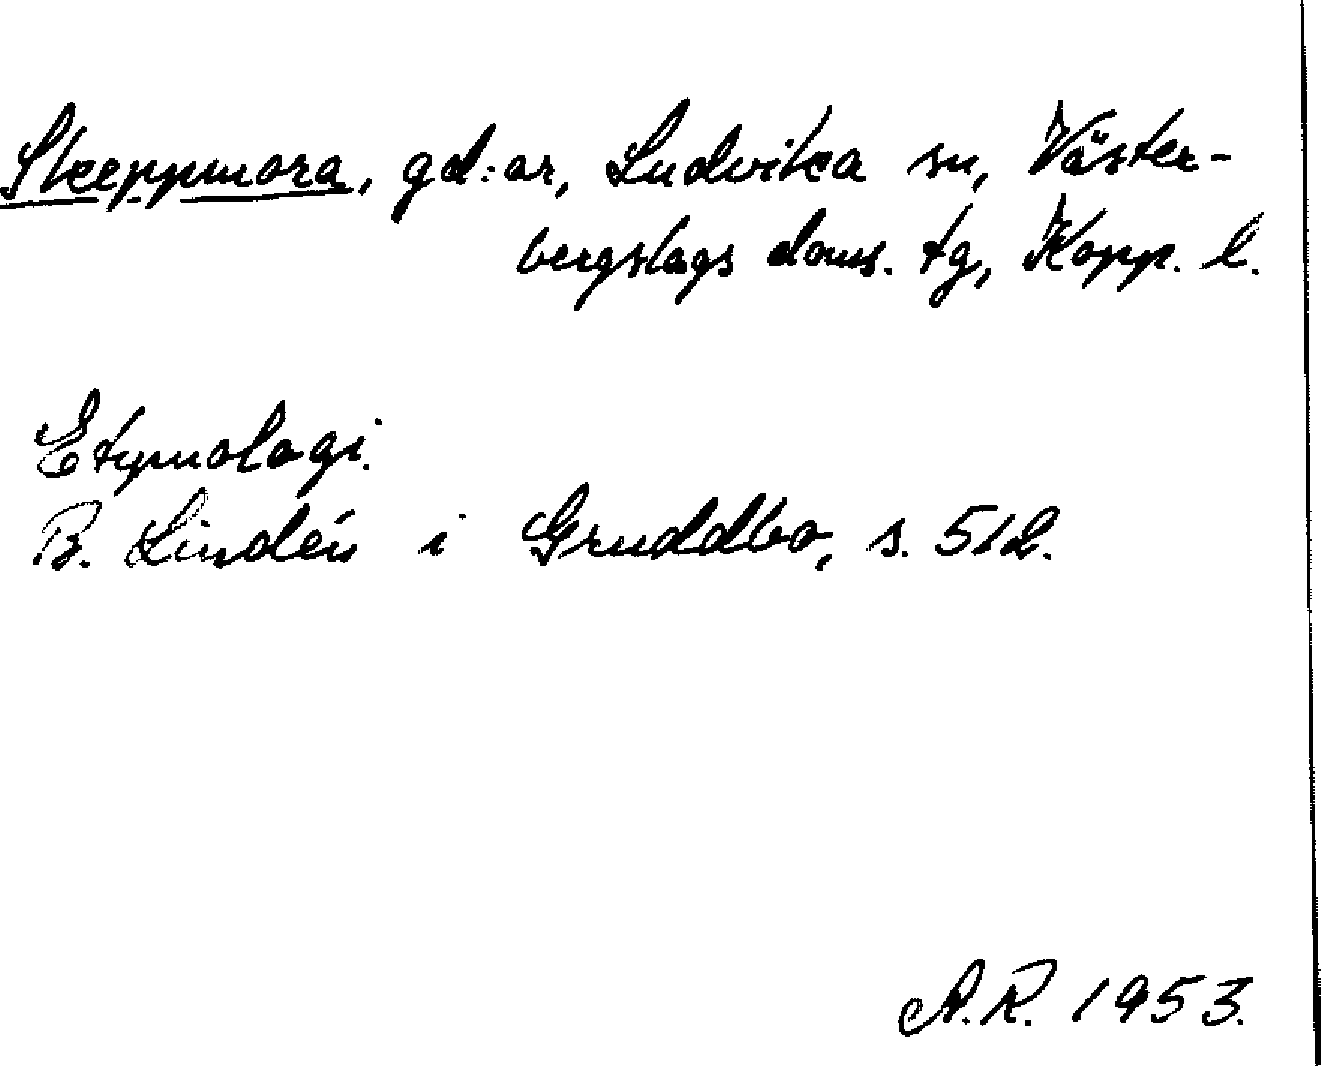 Skeppmora, gd:ar, Ludvika sn, Väster-
bergslags doms. tg, Kopp. l.
Etymologi.
B. Lindén i Gruddbo, s. 512.
A.R. 1953.